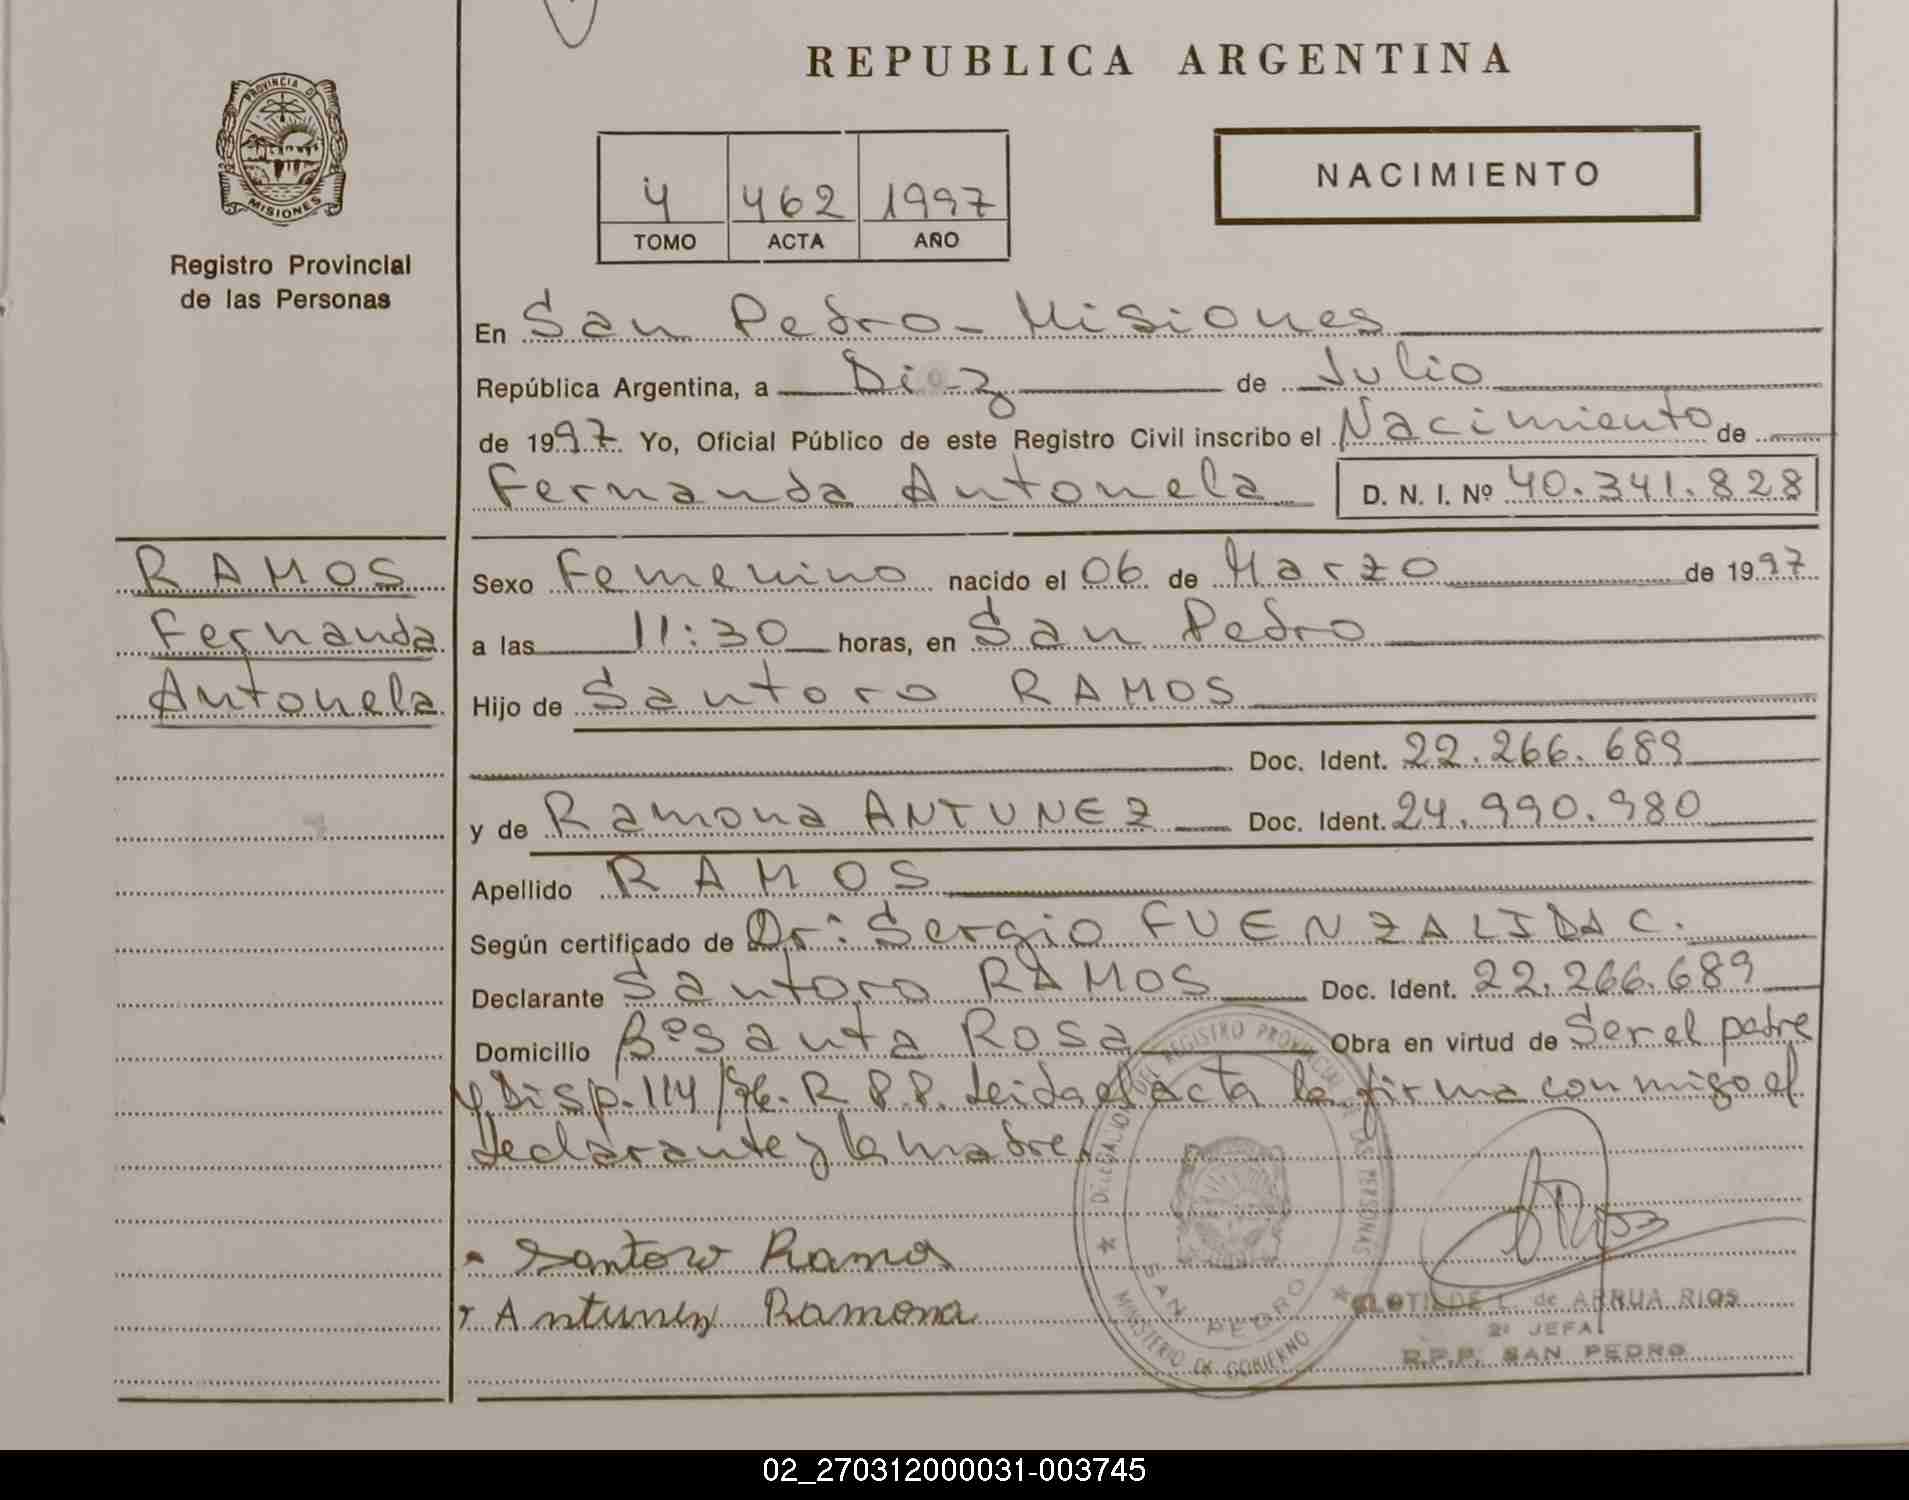 PROVINCIA D
MISIONES
Registro Provincial
de las Personas
REPUBLICA ARGENTINA
4 462 1997
TOMO ACTA AÑO
NACIMIENTO
En San Pedro - Misiones
República Argentina, a Diez de Julio
de 1997 Yo, Oficial Público de este Registro Civil inscribo el Nacimiento de
Fernanda Antonela D. N. I. Nº 40.341.828
RAMOS
Fernanda
Antonela
Sexo Femenino nacido el 06 de Marzo de 1997
a las 11:30 horas, en San Pedro
Hijo de Santoro RAMOS
Doc. Ident. 22.266.689
y de Ramona ANTUNEZ Doc. Ident. 24.990.980
Apellido RAMOS
Según certificado de Dr: Sergio FUENZALIDA C.
Declarante Santoro RAMOS Doc. Ident. 22.266.689
Domicilio Bº Santa Rosa Obra en virtud de Ser el padre
y Disp. 114/96. R.P.P. Leida el acta la firma conmigo el
declarante y la madre.
Santoro Ramos
Antunez Ramona
DEL REGISTRO PROVINCIAL DE LAS PERSONAS
SAN PEDRO
MINISTERIO DE GOBIERNO
CLOTILDE L. de ARRUA RIOS
2º JEFA
R.P.P. SAN PEDRO
02_270312000031-003745